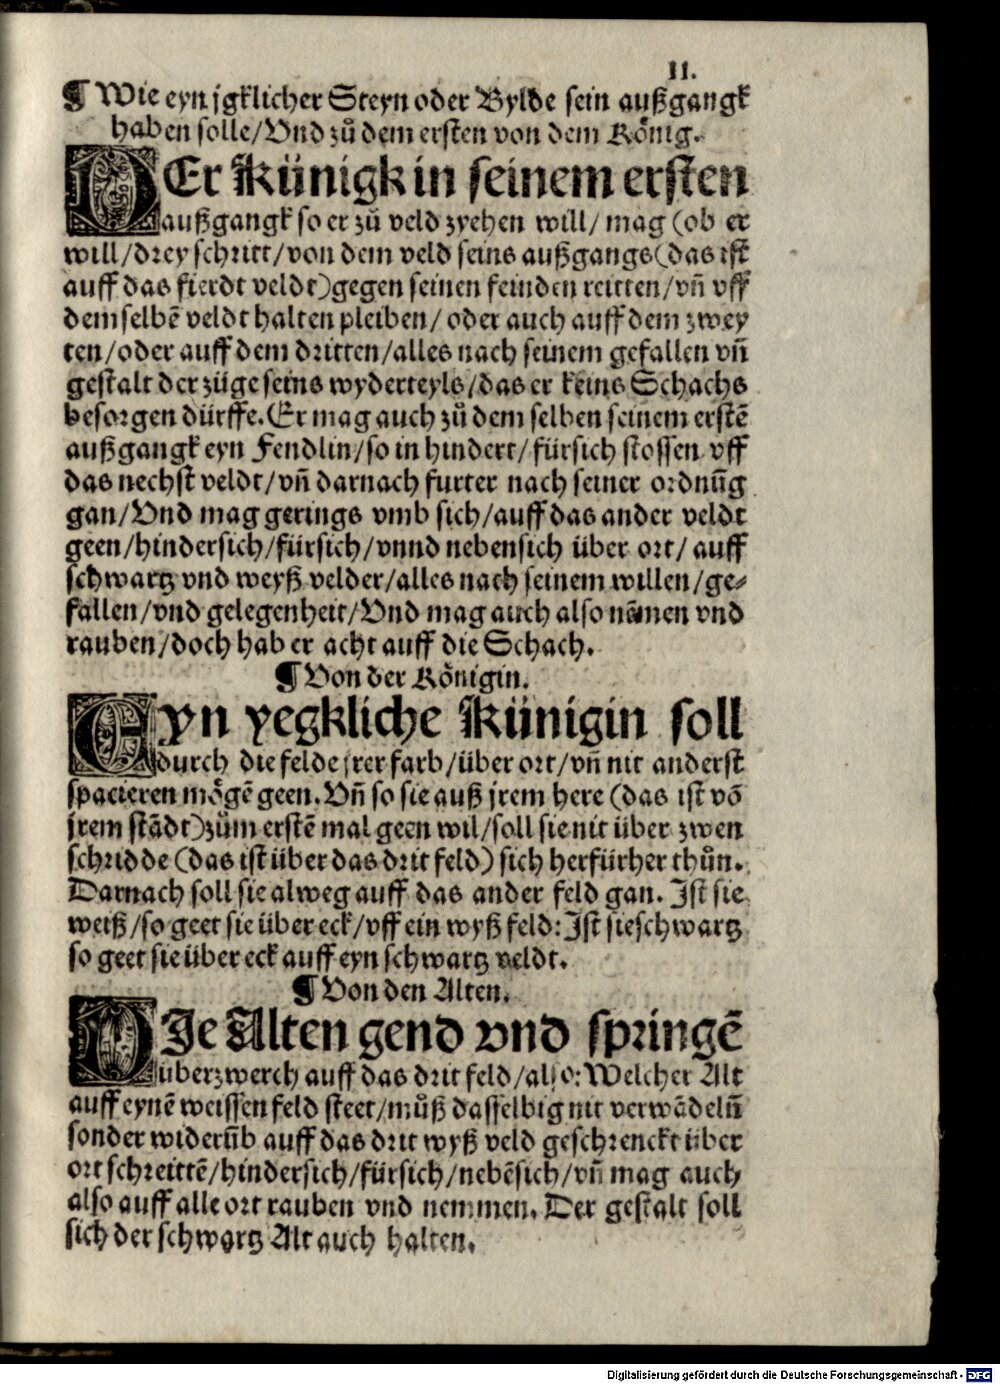 II.
¶ Wie eyn jgklicher Steyn oder Bylde sein außgangk
haben solle/Vnd zů dem ersten von dem Kőnig.
DEr Künigk in seinem ersten
außgangk so er zů veld zyehen will/ mag (ob er
will/drey schritt/von dem veld seins außgangs(das ist
auff das fierdt veldt)gegen seinen feinden reitten/vñ vff
demselbē veldt halten pleiben/ oder auch auff dem zwey
ten/oder auff dem dritten/alles nach seinem gefallen vñ
gestalt der züge seins wyderteyls/das er keins Schachs
besorgen dürffe. Er mag auch zů dem selben seinem erstē
außgangk eyn Fendlin/so in hindert/fürsich stossen vff
das nechst veldt/vñ darnach furter nach seiner ordnūg
gan/Vnd mag gerings vmb sich/auff das ander veldt
geen/hindersich/fürsich/vnnd nebensich über ort/ auff
schwartz vnd weyß velder/alles nach seinem willen/ge⸗
fallen/vnd gelegenheit/Vnd mag auch also nämen vnd
rauben/doch hab er acht auff die Schach.
¶ Von der Kőnigin.
EYn yegkliche Künigin soll
durch die felde jrer farb/über ort/vñ nit anderst
spacieren mőgē geen. Vñ so sie auß jrem here (das ist vō
jrem stādt)zům erstē mal geen wil/soll sie nit über zwen
schridde (das ist über das drit feld) sich herfürher thůn.
Darnach soll sie alweg auff das ander feld gan. Ist sie
weiß/so geet sie über eck/vff ein wyß feld: Ist sie schwartz
so geet sie über eck auff eyn schwartz veldt.
¶ Von den Alten.
DIe Alten gend vnd springē
überzwerch auff das drit feld/also: Welcher Alt
auff eynē weissen feld steet/můß dasselbig nit verwādelñ
sonder widerūb auff das drit wyß veld geschrenckt über
ort schreittē/hindersich/fürsich/nebēsich/vñ mag auch
also auff alle ort rauben vnd nemmen. Der gestalt soll
sich der schwartz Alt auch halten.
Digitalisierung gefördert durch die Deutsche Forschungsgemeinschaft - DFG